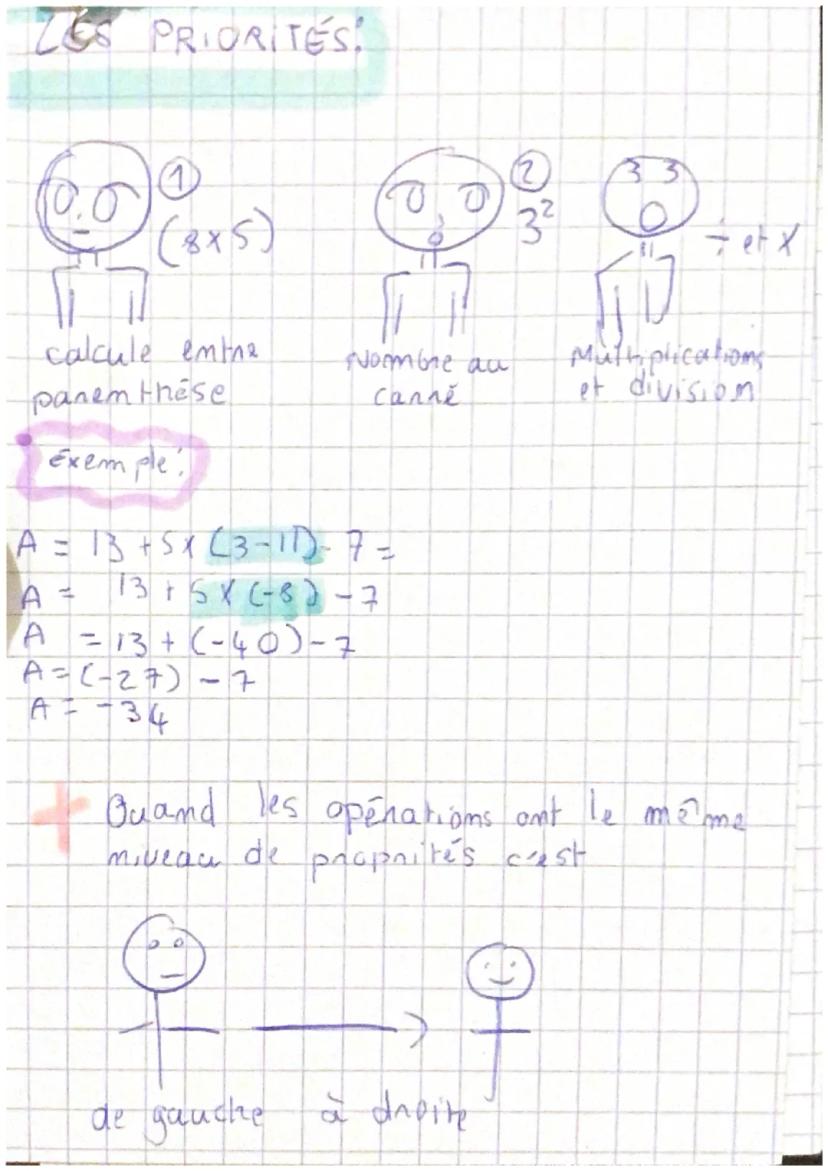 LES PRIORITÉS:
①
(8×5)
②
3²
3 3
÷ et X
calcule entre
parenthèse
Nombre au
carré
Multiplications
et division
Exemple:
A = 13 + 5 x (3-11) - 7 =
A = 13 + 5 X (-8) - 7
A = 13 + (-40) - 7
A = (-27) - 7
A = -34
+ Quand les opérations ont le même
niveau de propriétés c'est
de gauche à droite